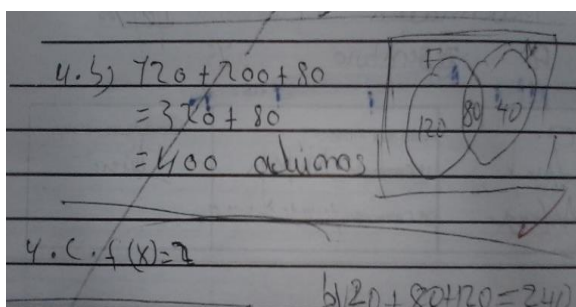 4.b) 120+200+80
=320+80
=400
F
120 80 40
4.C. f(x)=
b) 120+80+120=240